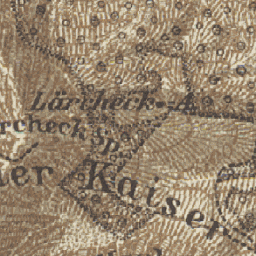 Lärcheck-A.
rcheck Sp.
er Kaiser